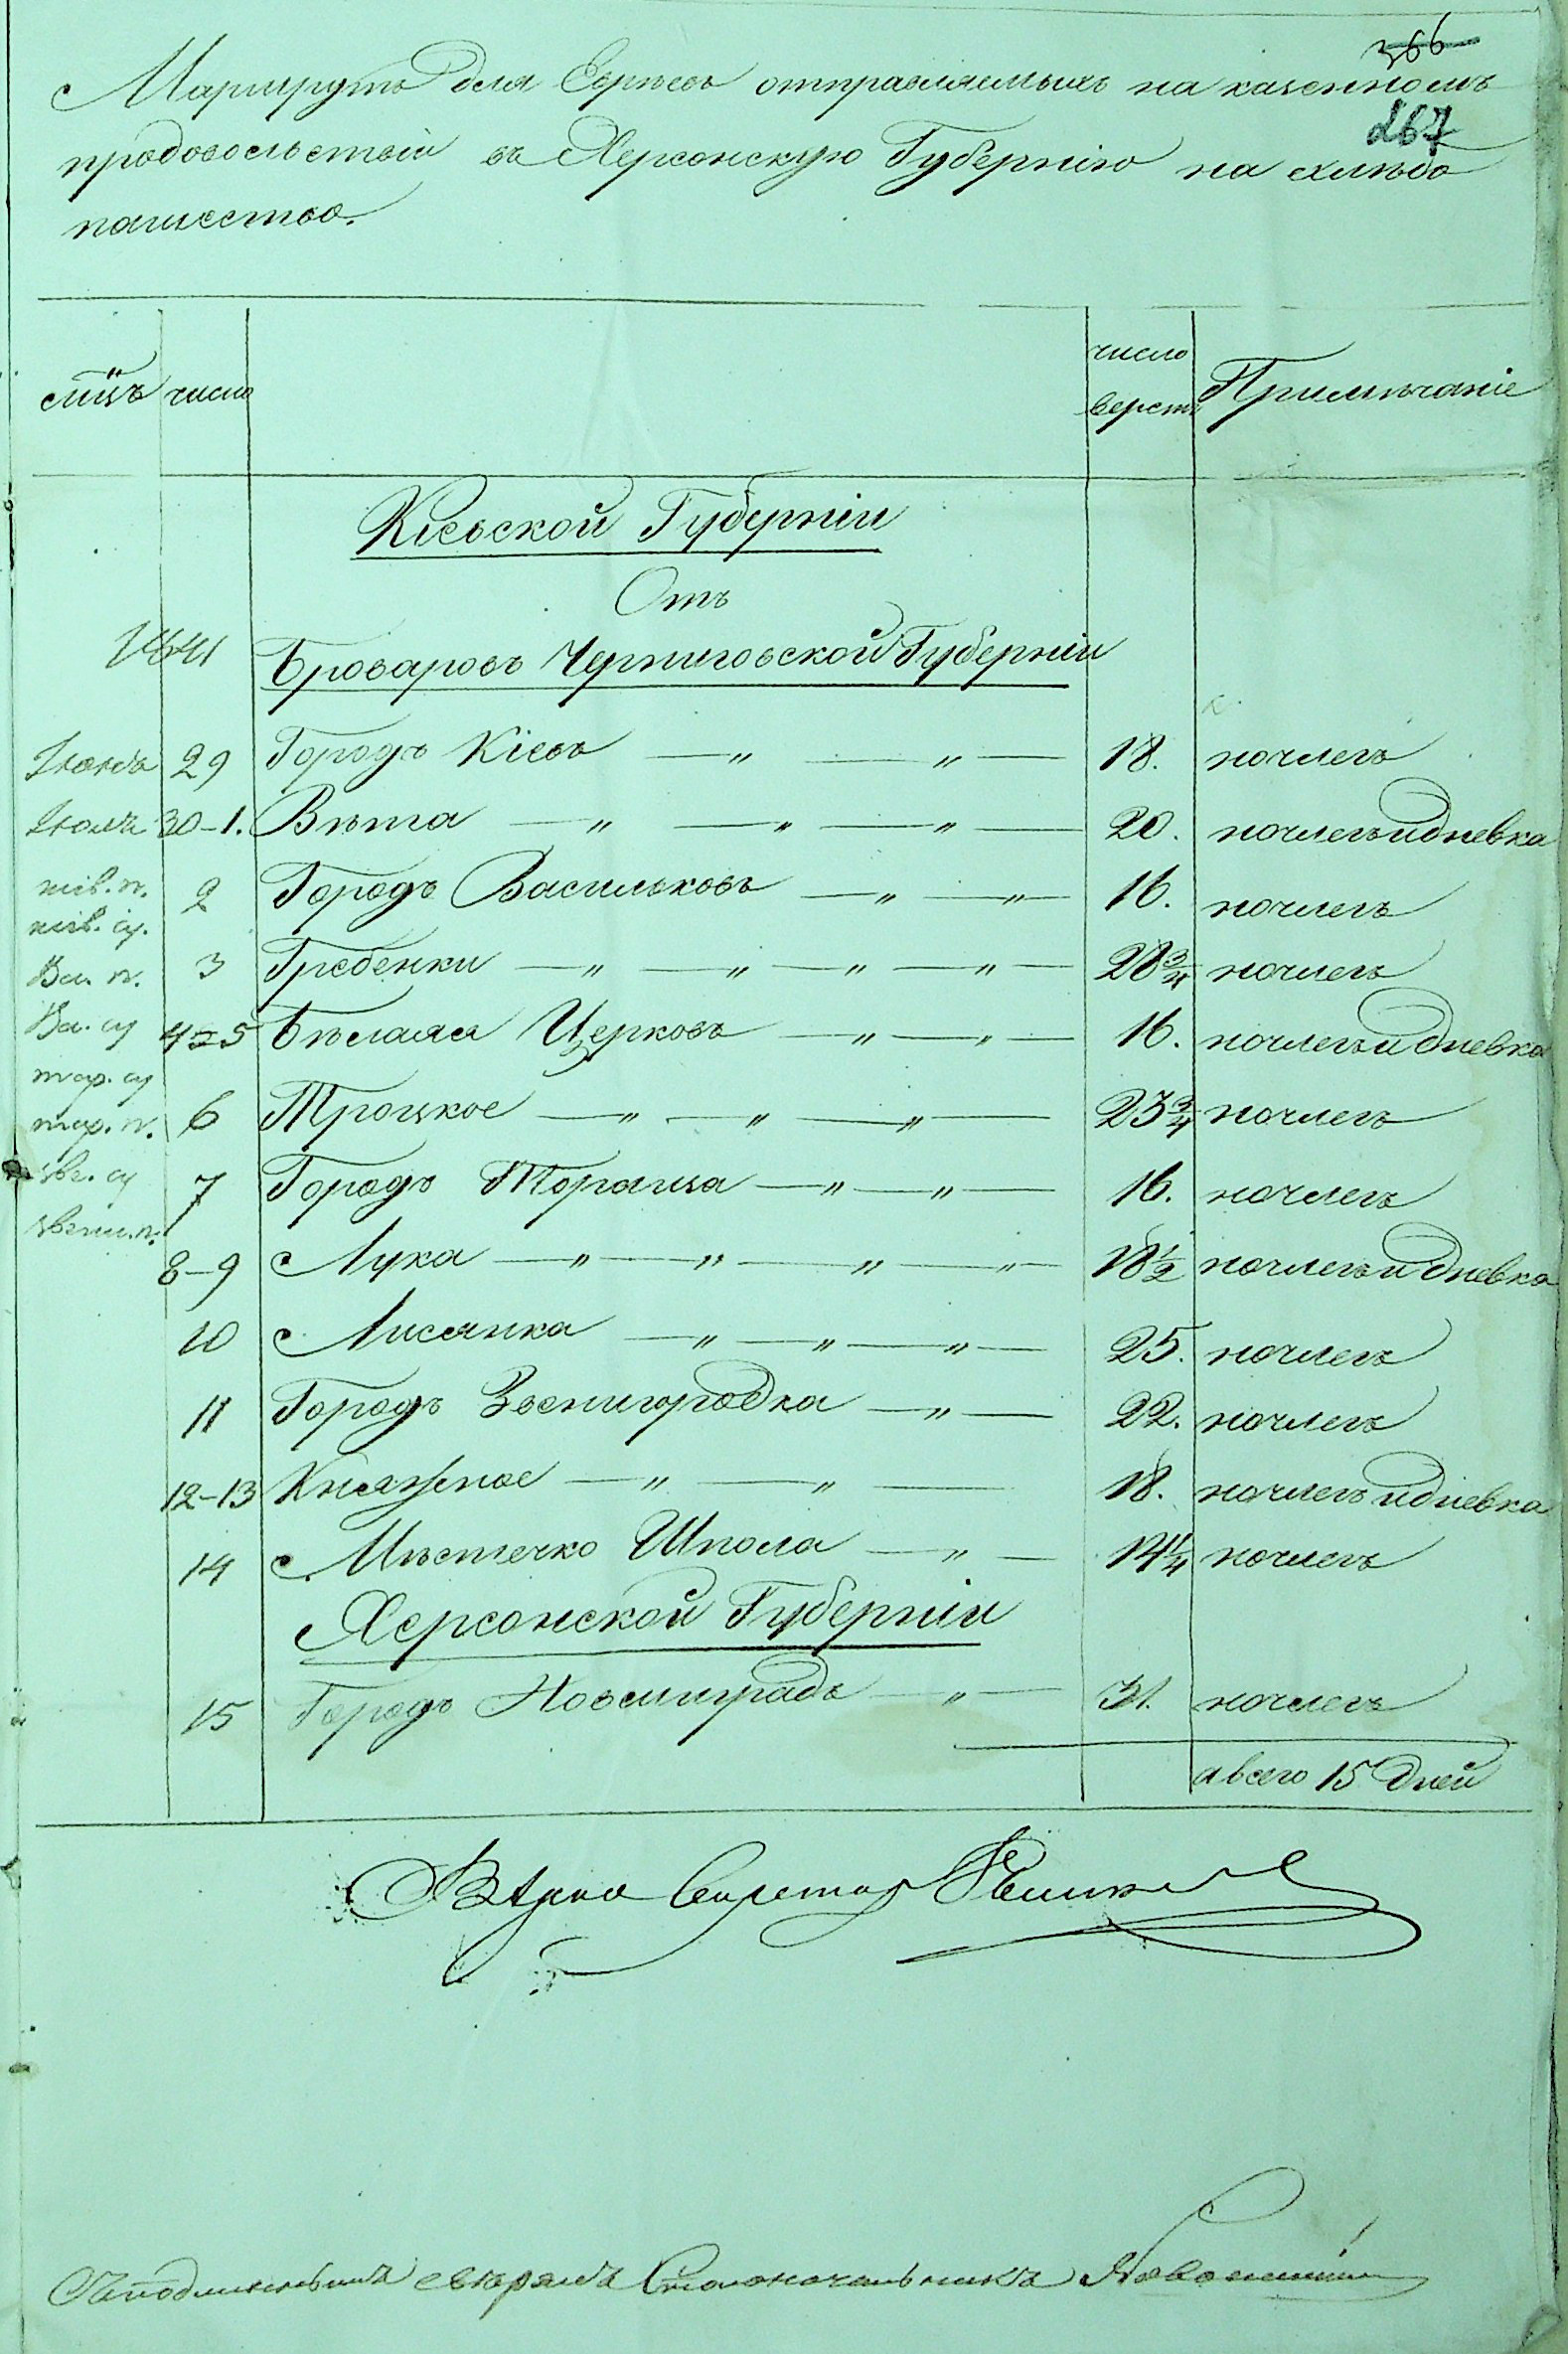 366
267
Маршрутъ для Евреевъ отправляемыхъ на казенномъ
продовольствіи въ Херсонскую Губернію на хлѣбо
пашество.
мцъ число число верстъ Примѣчаніе
Кіевской Губерніи
Отъ
1841 Броваровъ Черниговской Губерніи
Іюнь 29 Городъ Кіевъ —„— —„— 18. ночлегъ
Іюль 30–1. Вѣта —„— —„— —„— 20. ночлегъ и дневка
кіев. п. 2 Городъ Васильковъ —„— —„— 16. ночлегъ
кіев. су.
Ва. п. 3 Гребенки —„— —„— —„— —„— 28 3/4 ночлегъ
Ва. су 4–5 Бѣлая Церковь —„— —„— 16. ночлегъ и дневка
тар. су
тар. п. 6 Троцкое —„— —„— —„— 23 3/4 ночлегъ
зве. су 7 Городъ Тораща —„— —„— 16. ночлегъ
звени. п.
8–9 Лука —„— —„— —„— —„— 18 1/2 ночлегъ и дневка
10 Лисянка —„— —„— —„— 25. ночлегъ
11 Городъ Звенигородка —„— 22. ночлегъ
12–13 Княжное —„— —„— 18. ночлегъ и дневка
14 Мѣстечко Шпола —„— 14 1/4 ночлегъ
Херсонской Губерніи
15 Городъ Новомиградъ —„— 31. ночлегъ
а всего 15 дней
Секретарь
Съ подлиннымъ свѣрялъ Столоначальникъ